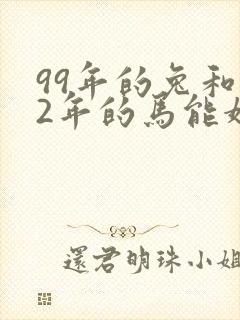 99年的兔和
2年的馬能
還君明珠小姐